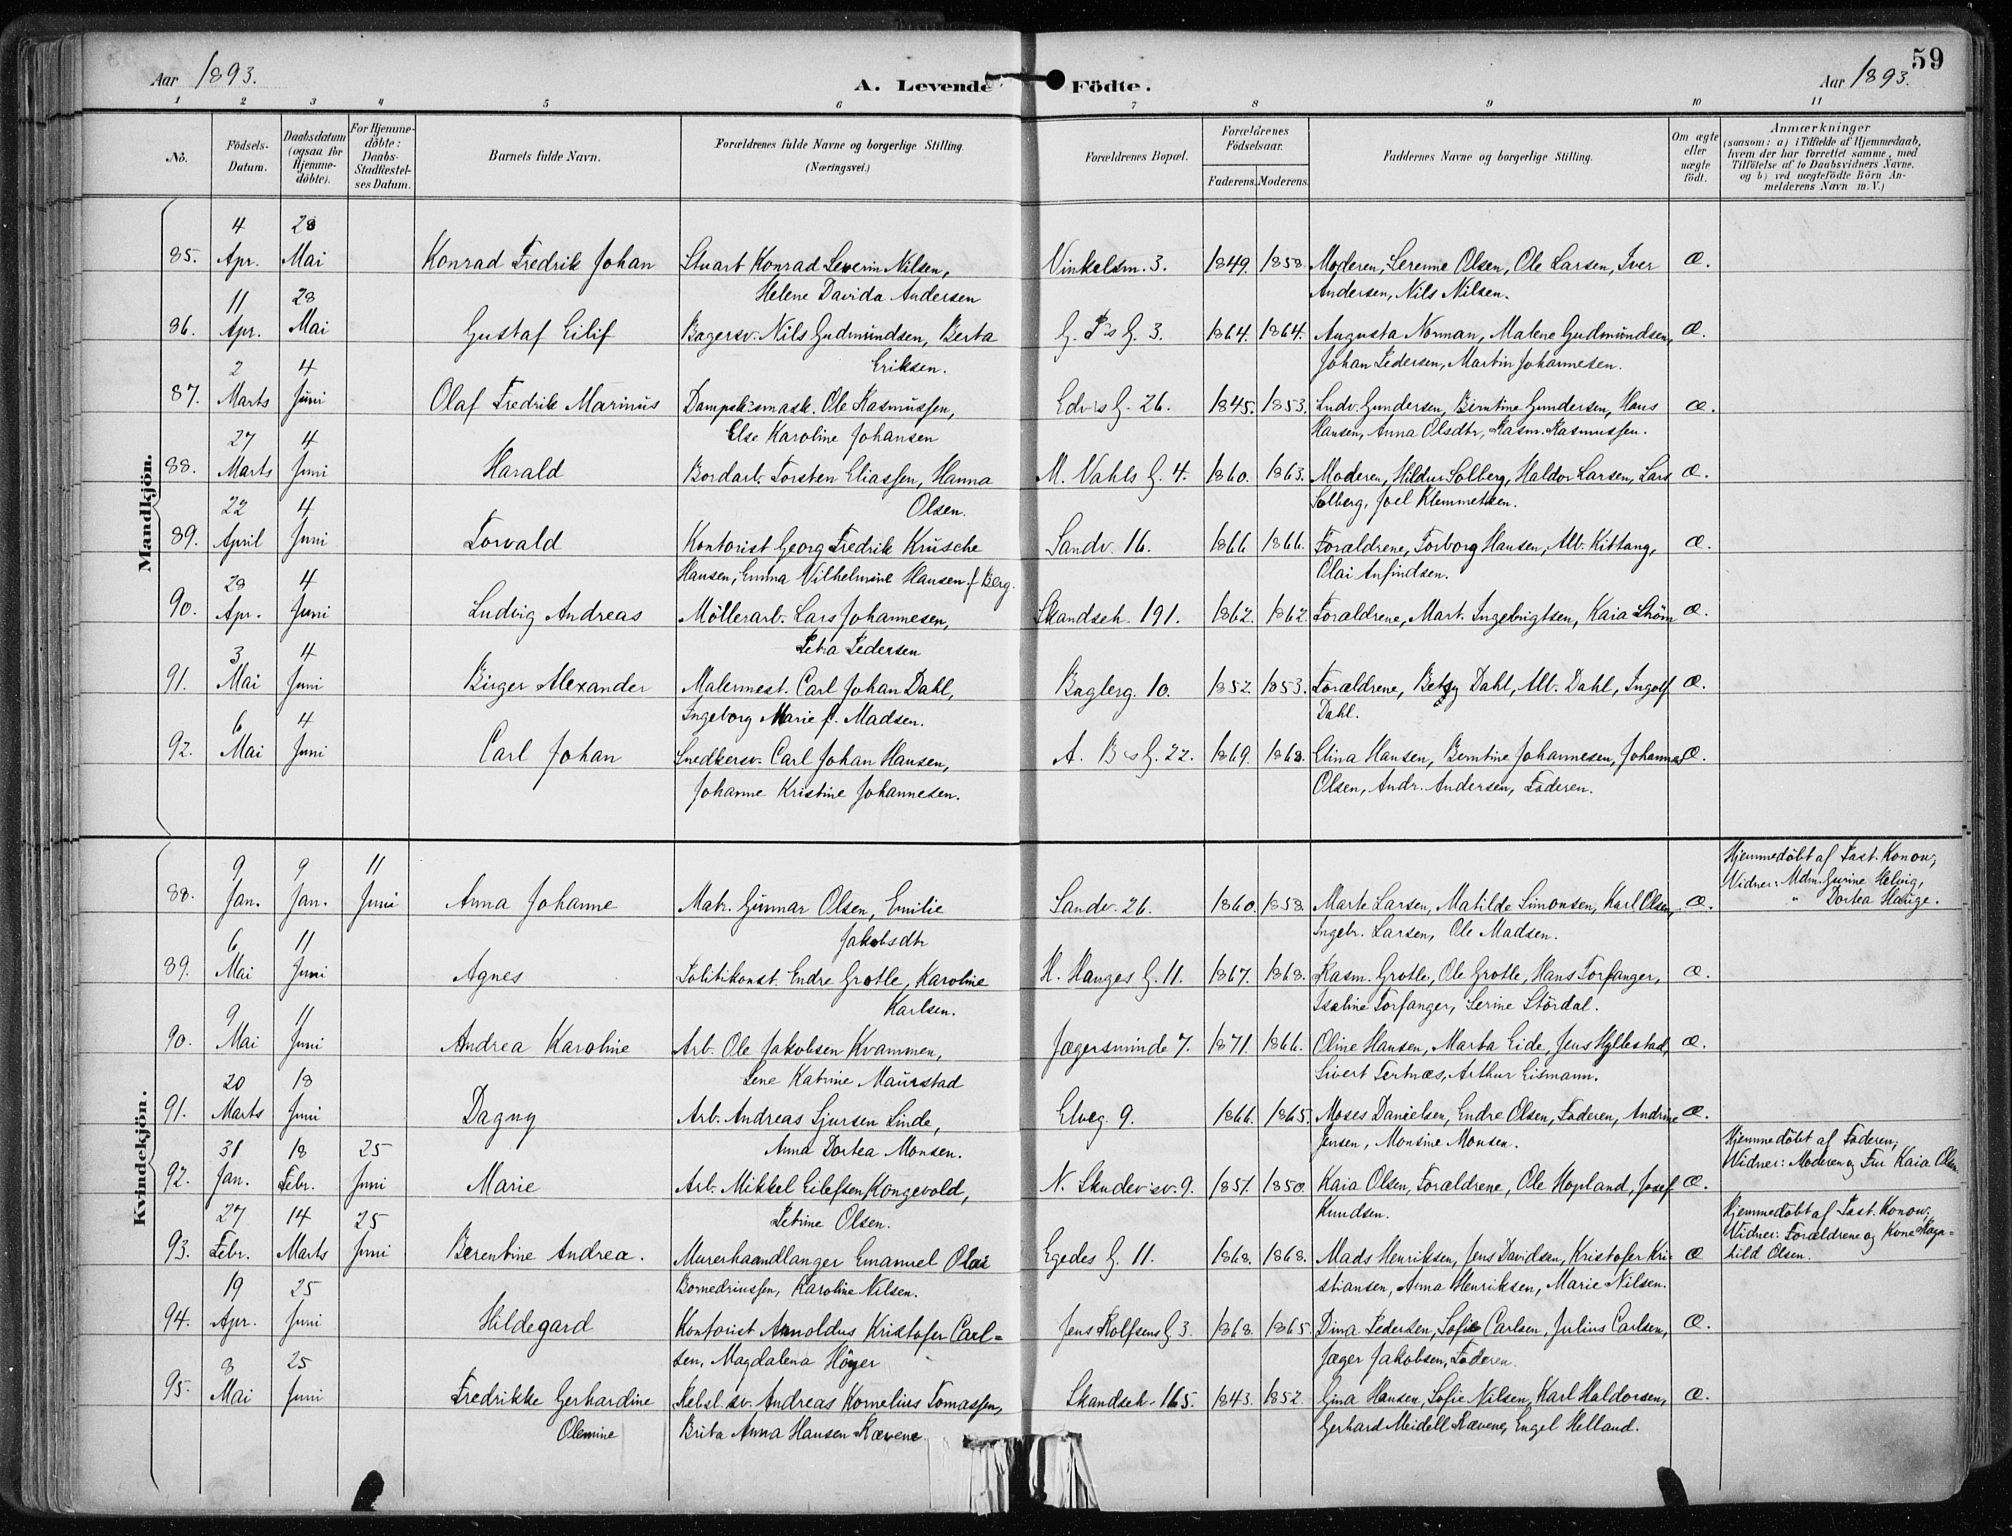 59
Aar 1893.
A. Levende Födte.
Aar 1893.
1 2 3 4 5 6 7 8 9 10 11
No.
Födsels-Datum.
Daabsdatum (ogsaa for Hjemme-döbte).
For Hjemme-döbte: Daabs-Stadfæstel-ses Datum.
Barnets fulde Navn.
Forældrenes fulde Navne og borgerlige Stilling. (Næringsvei.)
Forældrenes Bopæl.
Forældrenes Födselsaar.
Faderens. Moderens.
Faddernes Navne og borgerlige Stilling.
Om ægte eller uægte födt.
Anmærkninger
(saasom: a) i Tilfælde af Hjemmedaab, hvem der har forrettet samme, med Tilföielse af to Daabsvidners Navne, og b) ved uægtefödte Börn An-melderens Navn m. V.)
Mandkjön.
4 28
85. Apr. Mai Konrad Fredrik Johan Stuart Konrad Severin Nilsen, Vinkelsm. 3. 1849. 1858. Moderen, Serenne Olsen, Ole Larsen, Iver Æ.
Helene Davida Andersen Andersen, Nils Nilsen.
11 28
86. Apr. Mai Gustaf Eilif Bagersv. Nils Gudmundsen, Berta G. P's G. 3. 1864. 1864. Augusta Norman, Malene Gudmundsen, Æ.
Eriksen. Johan Pedersen, Martin Johannesen.
2 4
87. Marts Juni Olaf Fredrik Marinus Dampsk:smask. Ole Rasmussen, Edv:s G. 26. 1845. 1853. Ludv. Gundersen, Berntine Gundersen, Hans Æ.
Else Karoline Johansen Hansen, Anna Olsdtr, Rasm. Rasmussen.
27 4
88. Marts Juni Harald Bordarb. Torsten Eliassen, Hanna M. Vahls G. 4. 1860. 1863. Moderen, Hildur Solberg, Haldor Larsen, Lars Æ.
Olsen. Solberg, Joel Klemmetsen.
22 4
89. April Juni Torvald Kontorist Georg Fredrik Krusche Sandv. 16. 1866. 1866. Forældrene, Torborg Hansen, Alb. Kittang, Æ.
Hansen, Emma Vilhelmine Hansen f. Berg. Olai Anfindsen.
29 4
90. Apr. Juni Ludvig Andreas Möllerarb. Lars Johannesen, Skandseh. 191. 1862. 1862. Forældrene, Mart. Ingebrigtsen, Kaia Ström Æ.
Petra Pedersen
3 4
91. Mai Juni Birger Alexander Malermest. Carl Johan Dahl, Bagberg. 10. 1852. 1853. Forældrene, Betsy Dahl, Alb. Dahl, Ingolf Æ.
Ingeborg Marie f. Madsen. Dahl.
6 4
92. Mai Juni Carl Johan Snedkersv. Carl Johan Hansen, A. B:s G. 22. 1869. 1868. Elina Hansen, Berntine Johannesen, Johannes Æ.
Johanne Kristine Johannesen. Olsen, Andr. Andersen, Faderen.
Kvindekjön.
9 9 11 Hjemmedöbt af Past. Konow;
88. Jan. Jan. Juni Anna Johanne Matr. Gunnar Olsen, Emilie Sandv. 26. 1860. 1858. Marte Larsen, Matilde Simonsen, Karl Olsen, Æ. Vidner: Mdm. Gurine Helvig,
Jakobsdtr Ingebr. Larsen, Ole Madsen. " Dortea Hauge.
6 11
89. Mai Juni Agnes Politikonst. Endre Grotle, Karoline H. Hauges G. 11. 1867. 1868. Rasm. Grotle, Ole Grotle, Hans Torfanger, Æ.
Karlsen. Iseline Torfanger, Serine Stördal.
9 11
90. Mai Juni Andrea Karoline Arb. Ole Jakobsen Kvammen, Jægersminde 7. 1871. 1866. Oline Hansen, Marta Eide, Jens Hyllestad, Æ.
Lene Katrine Maurstad Sivert Tertnæs, Arthur Eismann.
20 18
91. Marts Juni Dagny Arb. Andreas Sjursen Linde, Elveg. 9. 1866. 1865. Moses Danielsen, Endre Olsen, Faderen, Andrine Æ.
Anna Dortea Monsen. Jensen, Monsine Monsen.
31 18 25 Hjemmedöbt af Faderen;
92. Jan. Febr. Juni Marie Arb. Mikkel Eilefsen Kongevold, N. Skudev:sv. 9. 1851. 1850. Kaia Olsen, Forældrene, Ole Hopland, Josef Æ. Vidner: Moderen og Fru Kaia Olsen
Petrine Olsen. Knudsen.
27 14 25 Hjemmedöbt af Past. Konow;
93. Febr. Marts Juni Berentine Andrea. Murerhaandlanger Emanuel Olai Egedes G. 11. 1868. 1868. Mads Henriksen, Jens Davidsen, Kristofer Kri- Æ Vidner: Forældrene og Kone Ragn=
Bomedriussen, Karoline Nilsen. stiansen, Anna Henriksen, Marie Nilsen. hild Olsen.
19 25
94. Apr. Juni Hildegard Kontorist Arnoldus Kristofer Carl= Jens Rolfsens G 3. 1868. 1865. Dina Pedersen, Sofie Carlsen, Julius Carlsen, Æ.
sen, Magdalena Höyer Jæger Jakobsen, Faderen.
8 25
95. Mai Juni Fredrikke Gerhardine Rebsl.sv. Andreas Kornelius Tomassen, Skandseh. 165. 1843. 1852. Gina Hansen, Sofie Nilsen, Karl Haldorsen, Æ.
Olemine Brita Anna Hansen Rævene. Gerhard Meidell Rævene, Engel Helland.